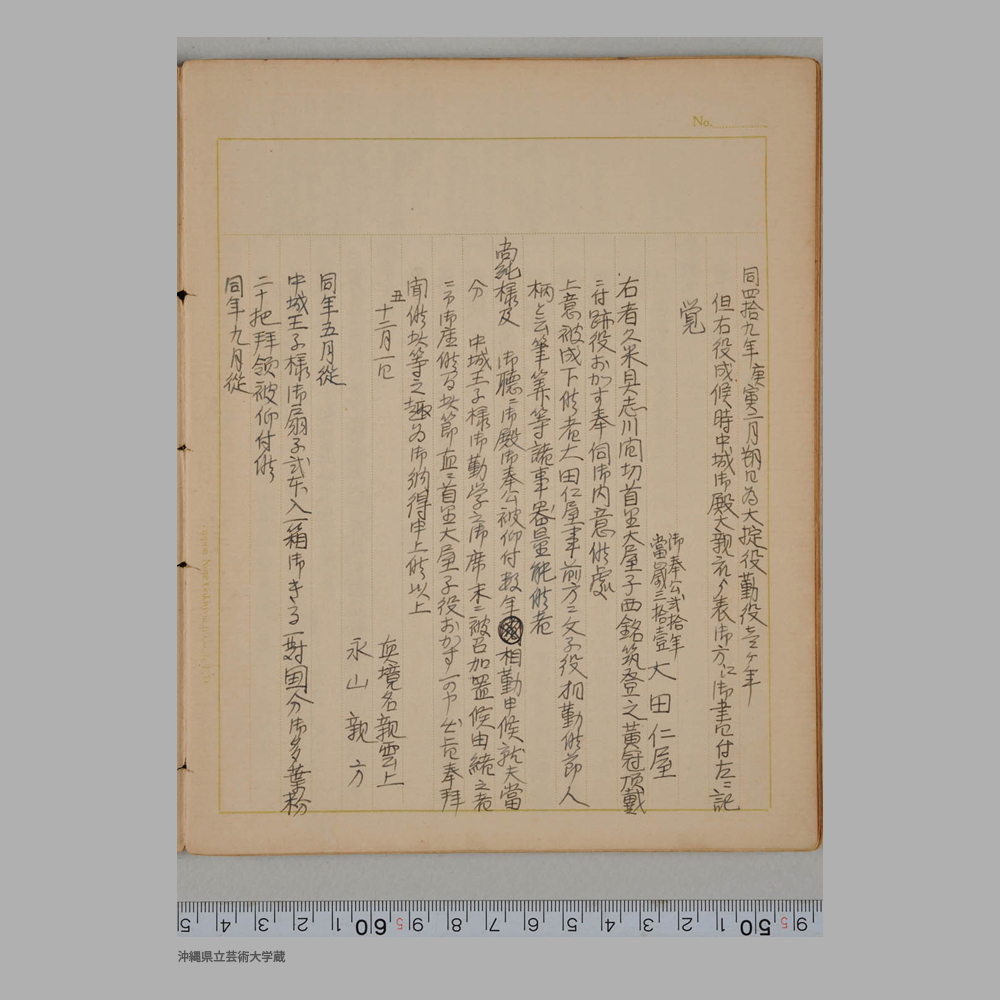 No.
同四拾九年庚寅二月朔日為大掟役勤役壱ヶ年
但右役成候時中城御殿大親衆ゟ表御方に御書付左ニ記
覚
御奉公弐拾年
當歳三拾壹 大田仁屋
右者久米具志川間切首里大屋子西銘筑登之黄冠頂戴
ニ付跡役おかす奉伺御内意候處
上意被成下候者大田仁屋事前方ニ文子役相勤候節人
柄と云筆算等諸事器量能候者
尚純様及 御聽ニ御殿御奉公被仰付数年相勤申候就夫當
分 中城王子様御勤学之御席末ニ被召加置候由緒之者
ニ而御座候間此節直ニ首里大屋子役おかす 奉拜
聞候此等之趣為御納得申上候以上
丑
十二月一日
真境名親雲上
永山親方
同年五月従
中城王子様御扇子弐本入一箱御きせる一對国分御多葉粉
二十把拜領被仰付候
同年九月従
5 4 3 2 1 60 5 9 8 7 6 5 4 3 2 1 50 5 9
沖縄県立芸術大学蔵